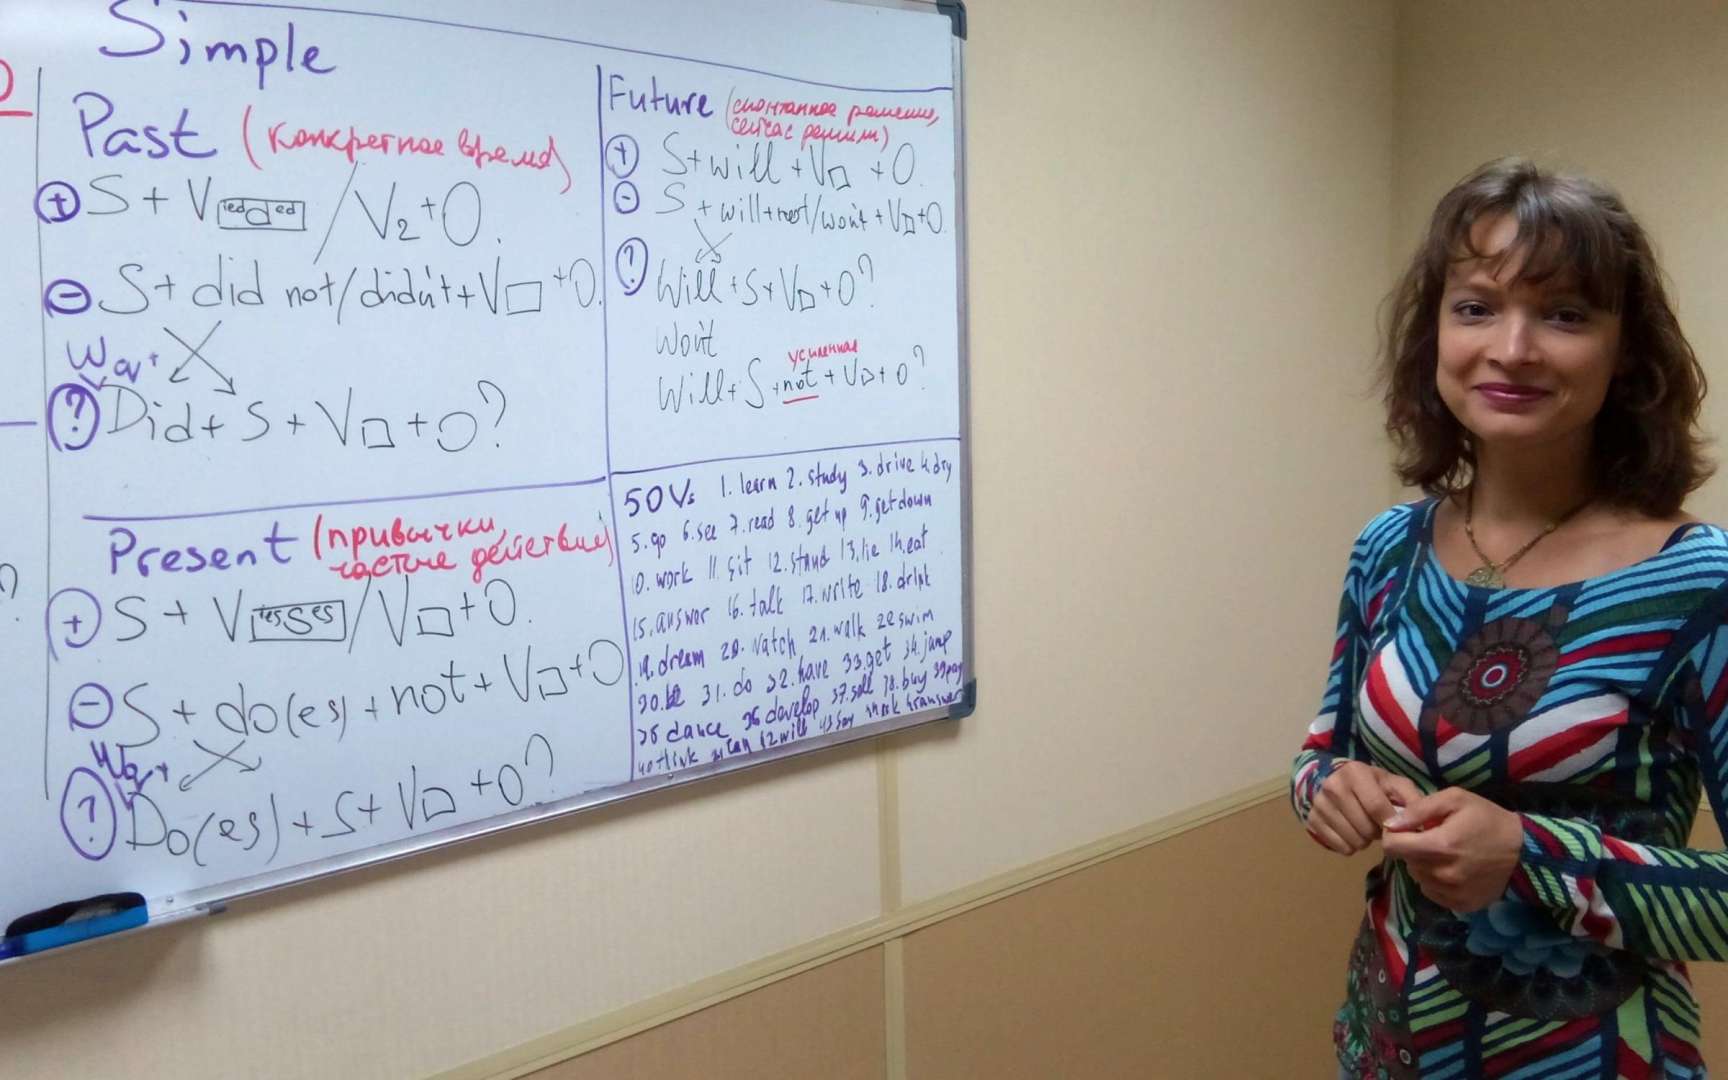 Simple
Past (конкретное время)
+ S + V ied d ed / V2 + O.
- S + did not/didn't + V□ + O.
Wq+
? Did + S + V□ + O?
Present (привычки,
частые действия)
+ S + V ies s es / V□ + O.
- S + do(es) + not + V□ + O
Wq+
? Do(es) + S + V□ + O?
Future (спонтанное решение,
сейчас решили)
+ S + will + V□ + O.
- S + will + not/won't + V□ + O.
? Will + S + V□ + O?
Won't
усиленная
Will + S + not + V□ + O?
50 Vs 1. learn 2. study 3. drive 4. dry
5. go 6. see 7. read 8. get up 9. get down
10. work 11. sit 12. stand 13. lie 14. eat
15. answer 16. talk 17. write 18. drink
19. dream 20. watch 21. walk 22 swim
30. be 31. do 32. have 33. get 34. jump
35 dance 36 develop 37. sell 38. buy 39 pay
40 think 41 can 42 will 43 say answer